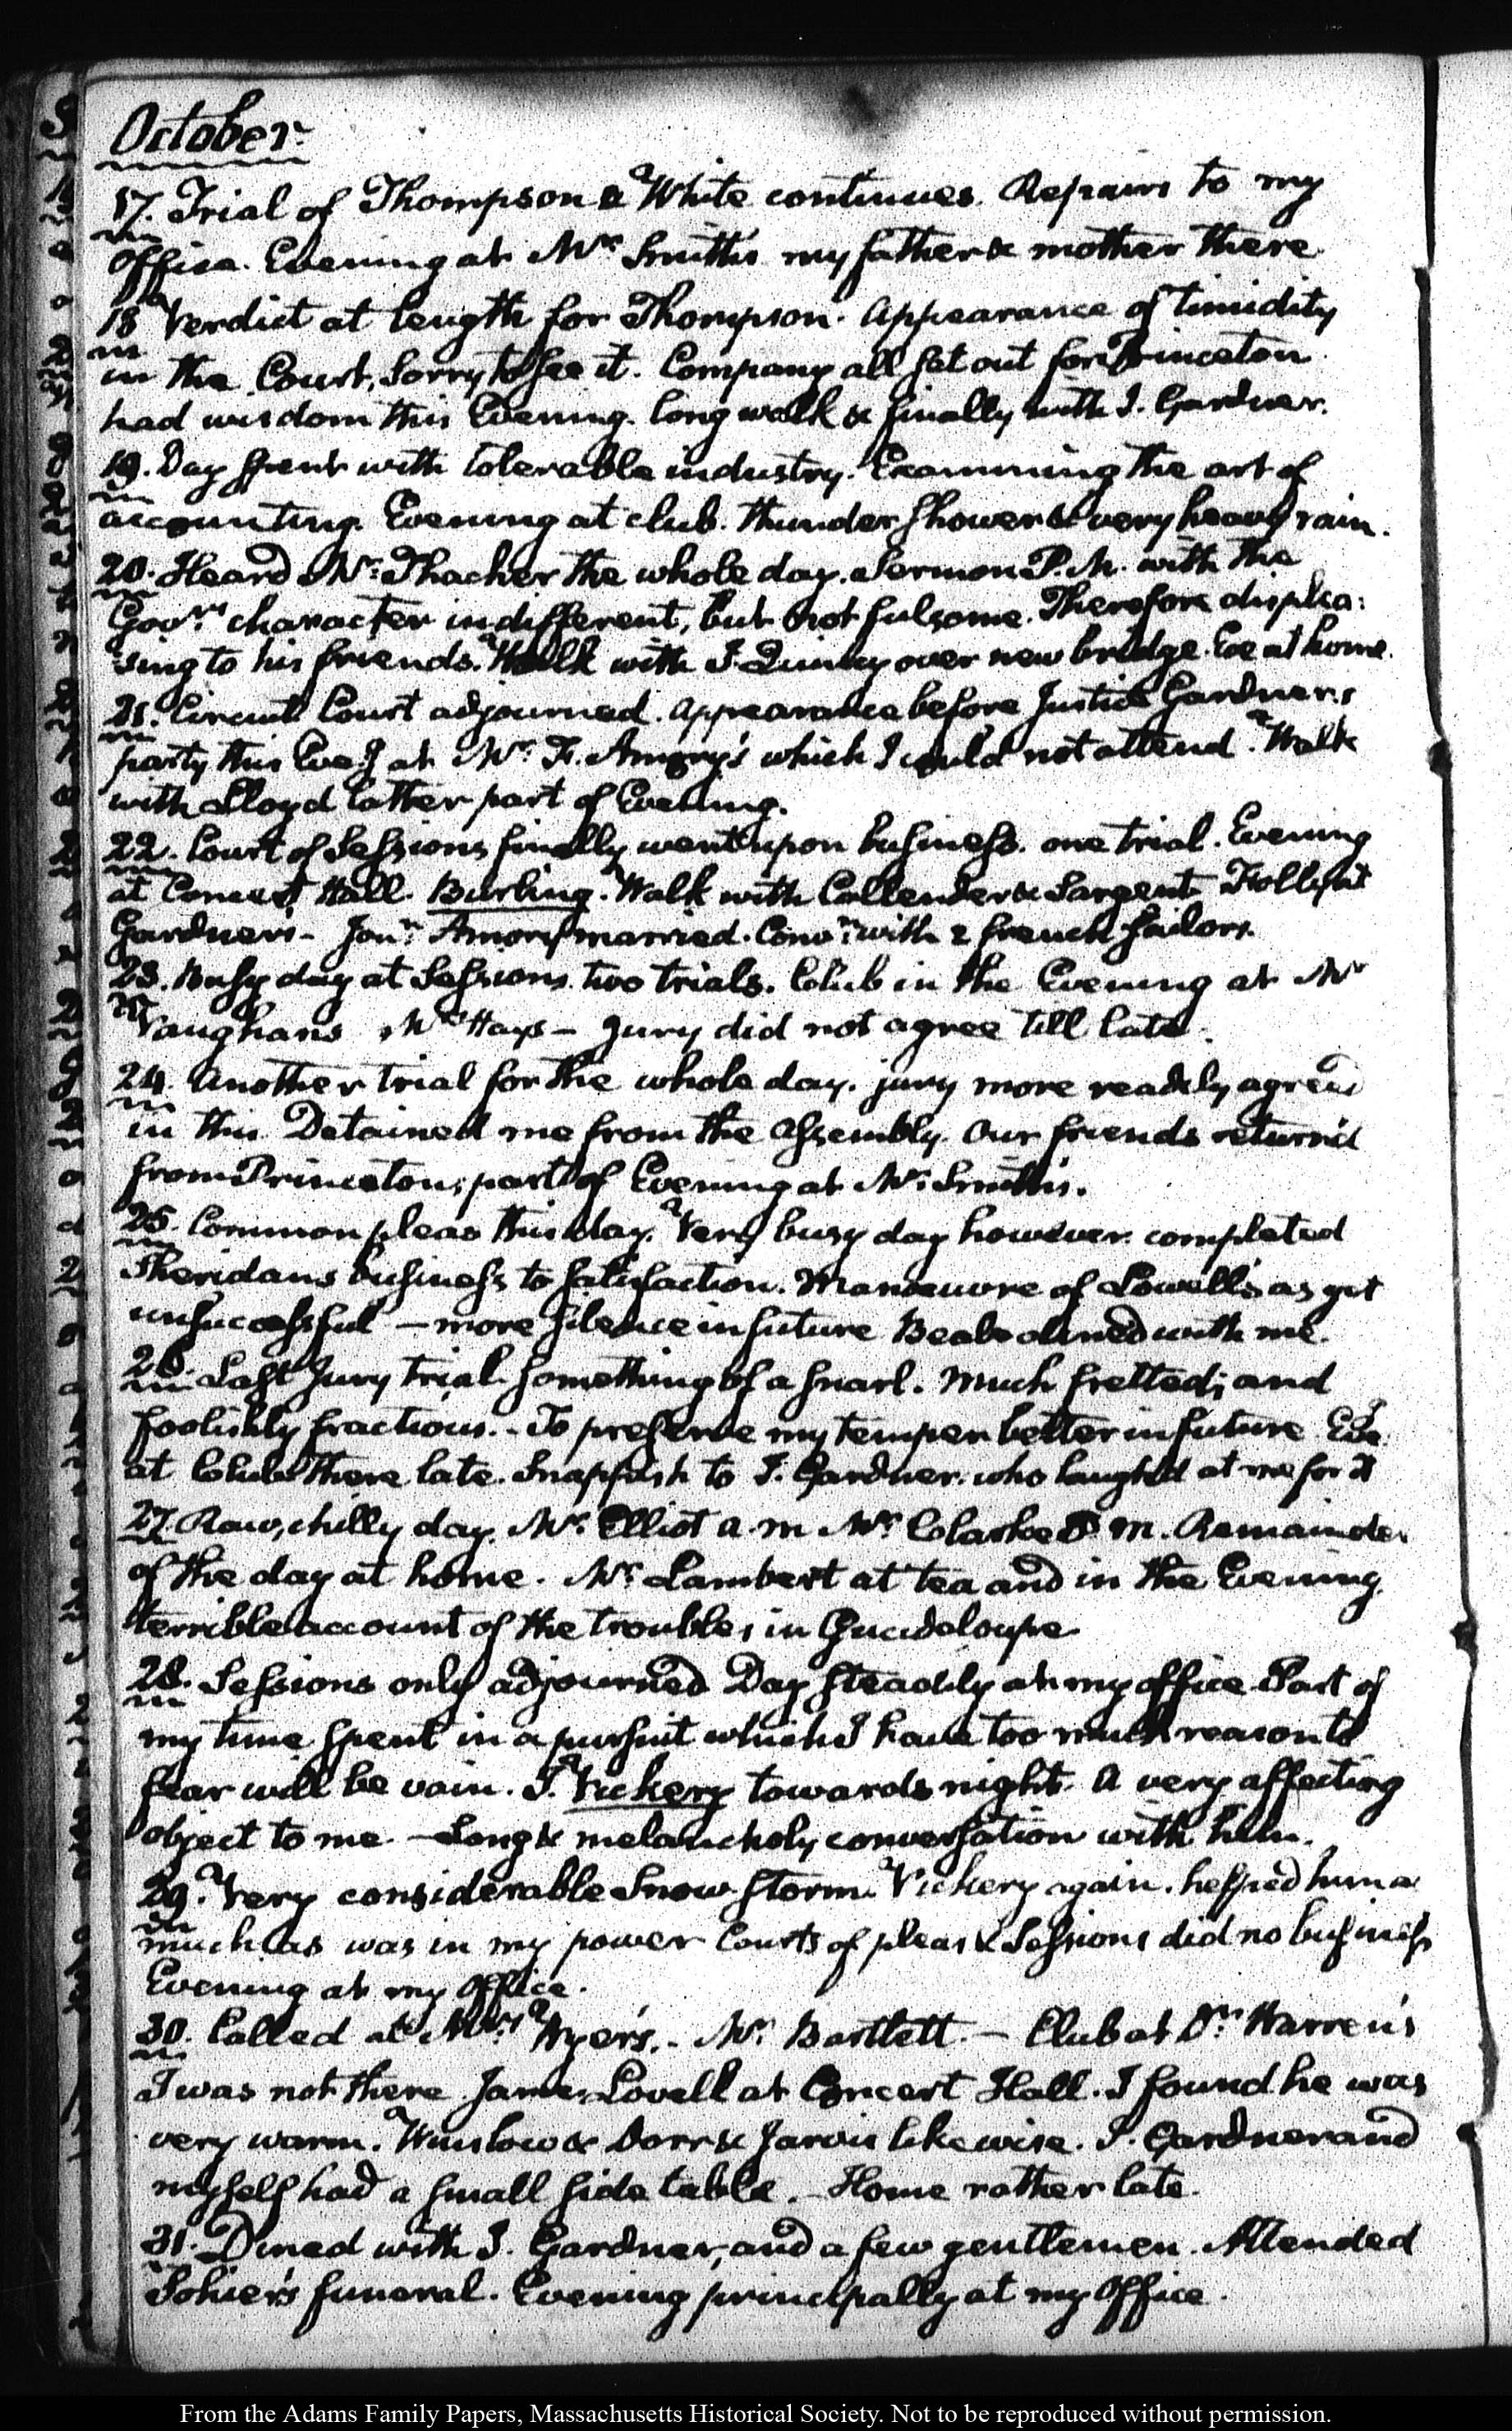 October.
17. Trial of Thompson & White continues. Repairs to my
office. Evening at Mr. Smith's my father & mother there
18 Verdict at length for Thompson. Appearance of timidity
in the Court, Sorry to see it. Company all set out for Princeton
had wisdom this Evening. long walk & finally with J. Gardner.
19. Day spent with tolerable industry. Examining the art of
accounting. Evening at club. thunder shower & very heavy rain.
20. Heard Mr. Thacher the whole day. Sermon P.M. with the
Govr's character indifferent, but not fulsome. Therefore displea:
sing to his friends. Walk with J. Quincy over new bridge. Eve at home.
21. Circuit Court adjourned. Appearance before Justice Gardner.
party this Eveg at Mr. F. Amory's which I could not attend. Walk
with Lloyd latter part of Evening.
22. Court of Sessions finally went upon business. one trial. Evening
at Concert Hall. Burling. Walk with Callender & Sargent Folly at
Gardner's - Jonn. Amory married. Convn. with 2 french sailors.
23. Busy day at Sessions. two trials. Club in the Evening at Mr
Vaughans Mr Hays - Jury did not agree till late.
24. Another trial for the whole day. jury more readily agreed
in this. Detained me from the Assembly. Our friends return'd
from Princeton; part of Evening at Mr. Smith's.
25. Common pleas this day. Very busy day however. completed
Sheridans business to satisfaction. Manoeuvre of Lowell's as yet
unsuccessful - more silence in future Beale dined with me.
26. Last Jury trial. something of a snarl. Much fretted; and
foolishly fractious. - To preserve my temper better in future Eve
at Club. There late. Snappish to J. Gardner. who laugh'd at me for it
27. Raw, chilly day. Mr. Elliot a.m Mr. Clarke P M. Remainder
of the day at home. Mr. Lambert at tea and in the Evening
terrible account of the troubles in Guadeloupe
28. Sessions only adjourned Day steadily at my office Part of
my time spent in a pursuit which I have too much reason to
fear will be vain. J. Vickery towards night. A very affecting
object to me. - Long & melancholy conversation with him.
29. Very considerable Snow storm. Vickery again. helped him as
much as was in my power Courts of pleas & Sessions did no business
Evening at my office.
30. Called at Mrs. Wyer's. - Mr. Bartlett. - Club at Dr. Warren's
I was not there. James Lovell at Concert Hall. I found he was
very warm. Winslow & Dorr & Jarvis likewise. J. Gardner and
myself had a small side table. - Home rather late.
31. Dined with J. Gardner, and a few gentlemen. Attended
Sohier's funeral. Evening principally at my Office.
From the Adams Family Papers, Massachusetts Historical Society. Not to be reproduced without permission.